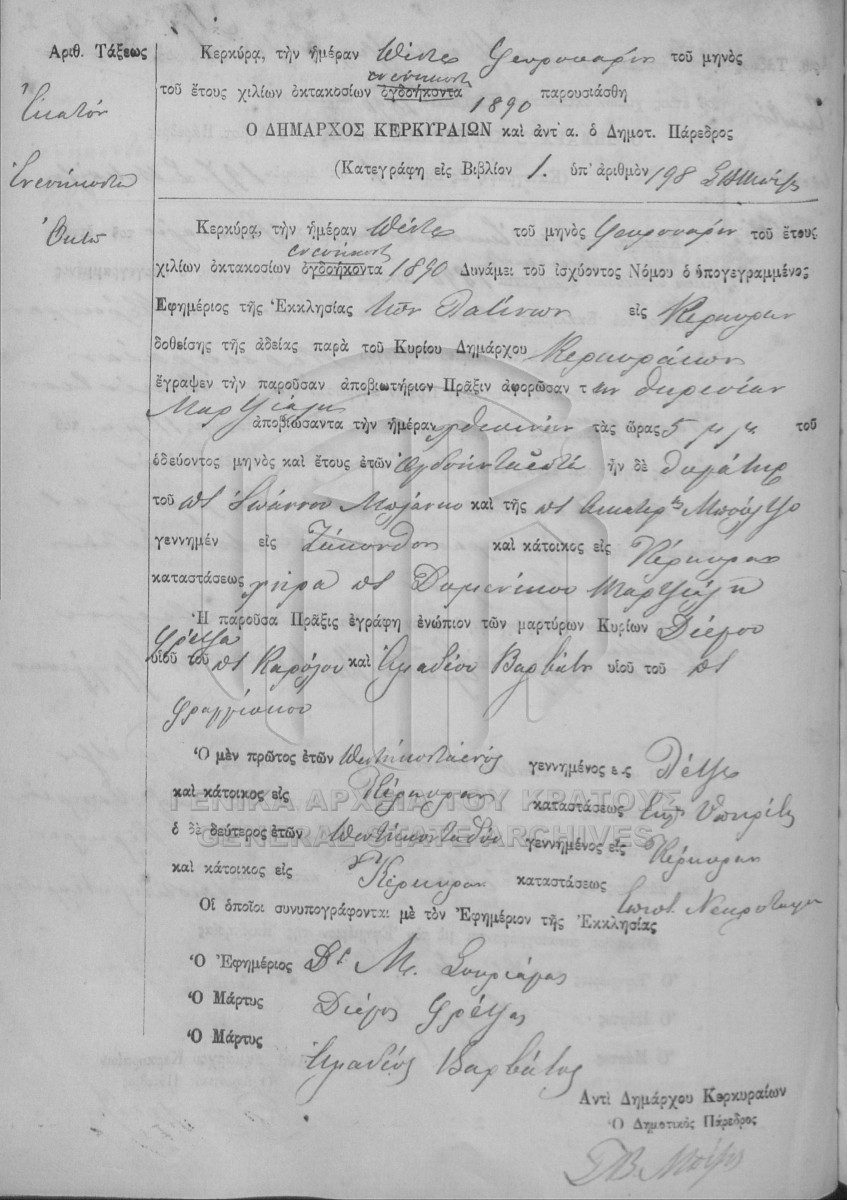 Ἀριθ. Τάξεως
Ἑκατόν
Ἐννενήκοντα
Ὀκτώ
Κερκύρα, τὴν ἡμέραν Πέντε Φευρουαρίου τοῦ μηνὸς
ἐννενήκοντα
τοῦ ἔτους χιλίων ὀκτακοσίων ὀγδοήκοντα 1890 παρουσιάσθη
Ο ΔΗΜΑΡΧΟΣ ΚΕΡΚΥΡΑΙΩΝ καὶ ἀντ' α. ὁ Δημοτ. Πάρεδρος
(Κατεγράφη εἰς Βιβλίον 1. ὑπ' ἀριθμὸν 198
Κερκύρα, τὴν ἡμέραν Πέντε τοῦ μηνὸς Φευρουαρίου τοῦ ἔτους
ἐννενήκοντα
χιλίων ὀκτακοσίων ὀγδοήκοντα 1890 Δυνάμει τοῦ ἰσχύοντος Νόμου ὁ ὑπογεγραμμένος
Ἐφημέριος τῆς Ἐκκλησίας τῶν Λατίνων εἰς Κέρκυραν
δοθείσης τῆς ἀδείας παρὰ τοῦ Κυρίου Δημάρχου Κερκυραίων
ἔγραψεν τὴν παροῦσαν ἀποβιωτήριον Πρᾶξιν ἀφορῶσαν τ ὴν
Μαρτζιάλη
ἀποβιώσαντα τὴν ἡμέραν χθεσινὴν τὰς ὥρας 5 μ μ. τοῦ
ὁδεύοντος μηνὸς καὶ ἔτους ἐτῶν ὀγδοήκοντα ἑπτά ἦν δὲ θυγάτηρ
τοῦ ποτ Ἰωάννου καὶ τῆς ποτ Αἰκατερ
γεννημέν εἰς Ζάκυνθον καὶ κάτοικος εἰς Κέρκυραν
καταστάσεως χήρα ποτ Δομενίκου Μαρτζιάλη
Ἡ παροῦσα Πρᾶξις ἐγράφη ἐνώπιον τῶν μαρτύρων Κυρίων Διέγου
Φρέτζα
υἱοῦ τοῦ ποτ Καρόλου καὶ Ἀμαδέου Βαρβάτη υἱοῦ τοῦ ποτ
Φραγγίσκου
Ὁ μὲν πρῶτος ἐτῶν Πεντήκοντα ἑνός γεννημένος ε.ς Λέτζε
καὶ κάτοικος εἰς Κέρκυραν καταστάσεως Ὑπηρέτης
ὁ δὲ δεύτερος ἐτῶν Πεντήκοντα δύο γεννημένος εἰς Κέρκυραν
καὶ κάτοικος εἰς Κέρκυραν καταστάσεως
Οἱ ὁποῖοι συνυπογράφονται μὲ τὸν Ἐφημέριον τῆς Ἐκκλησίας
Ὁ Ἐφημέριος
Ὁ Μάρτυς Διέγος Φρέτζας
Ὁ Μάρτυς Ἀμαδέος Βαρβάτης
Ἀντὶ Δημάρχου Κερκυραίων
Ὁ Δημοτικὸς Πάρεδρος
ΓΕΝΙΚΑ ΑΡΧΕΙΑ ΤΟΥ ΚΡΑΤΟΥΣ
GENERAL STATE ARCHIVES